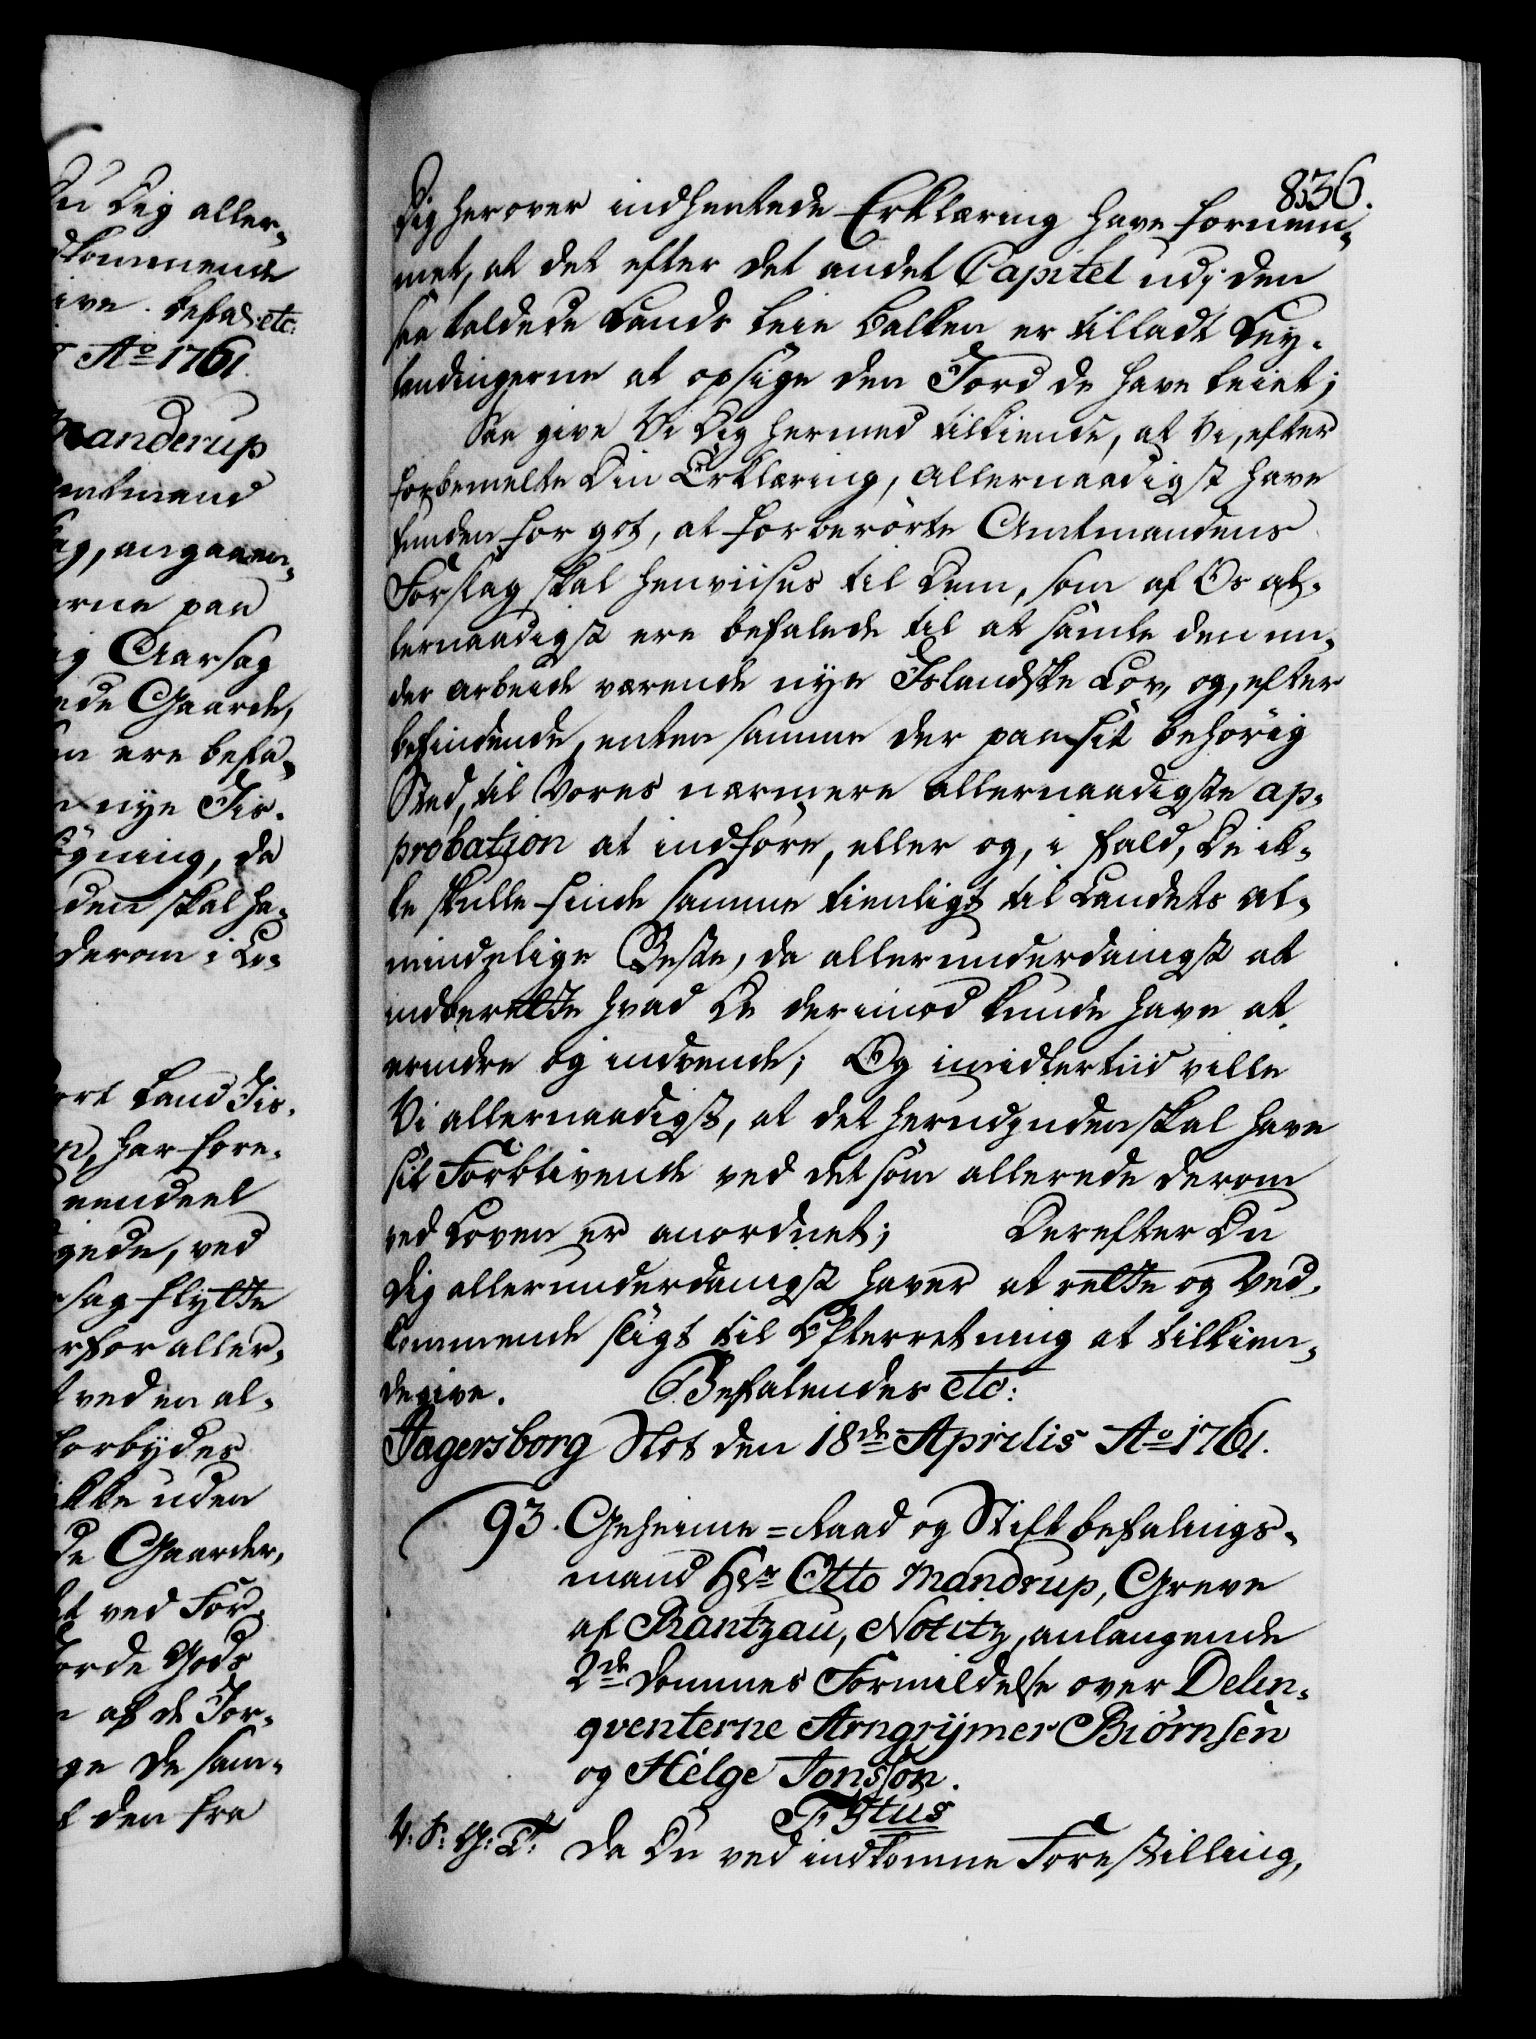 Du Dig aller-
dkommende
ive. befal: etc:
Ao 1761.
anderup
mtmand
ag, angaaen-
erne paa
g Aarsag
ede Gaarde,
n ere befa-
nye Jis-
gning, da
den skal ha-
derom i Lo-
ort Land Jis-
n, har fore-
eendeel
gede, ved
sag flytte
rfor aller-
t ved en al-
forbyder
ikke uden
de Gaarder,
et ved For-
orde Gods
af de Jor-
ge de sam-
den fra
836.
Dig herover indhentede Erklæring have fornum-
met, at det efter det andet Capitel udi den
saa kaldede Lands leie Balken er tilladt Ley-
lændingerne at opsige den Jord de have leiet;
Saa give Vi Dig hermed tilkiende, at Vi, efter
forbemelte Din Erklæring, allernaadigst have
funden for got, at forberørte Amtmandens
Forslag skal henviises til dem, som af Os al-
lernaadigst ere befalede til at samle den un-
der arbeide værende nye Islandske Lov, og, efter
befindende, enten samme der paa sit behørig
Sted, til Vores nærmere allernaadigste ap-
probation at indføre, eller og, i fald, De ik-
ke skulle finde samme tienligt til Landets al-
mindelige Beste, da allerunderdanigst at
indberette hvad De derimod kunde have at
erindre og indvende; Og imidlertiid ville
Vi allernaadigst, at det herudjnden skal have
sit Forblivende ved det som allerede derom
ved Loven er anordnet; Derefter Du
dig allerunderdanigst haver at rette og Ved-
kommende sligt til Efterretning at tilkien-
degive. Befalendes etc:
Jagersborg Slot den 18de Aprilis Ao 1761.
93. Geheime=Raad og Stiftbefalings-
mand Hr Otto Mandrup, Greve
af Rantzau, Notitz, anlangende
2de Dommes Formildelse over Delin-
qventerne Arngrijmer Biørnsen
og Helge Jonssøn.
F. 5tus
V. S. G. T. Da Du ved indkomne Forestilling,